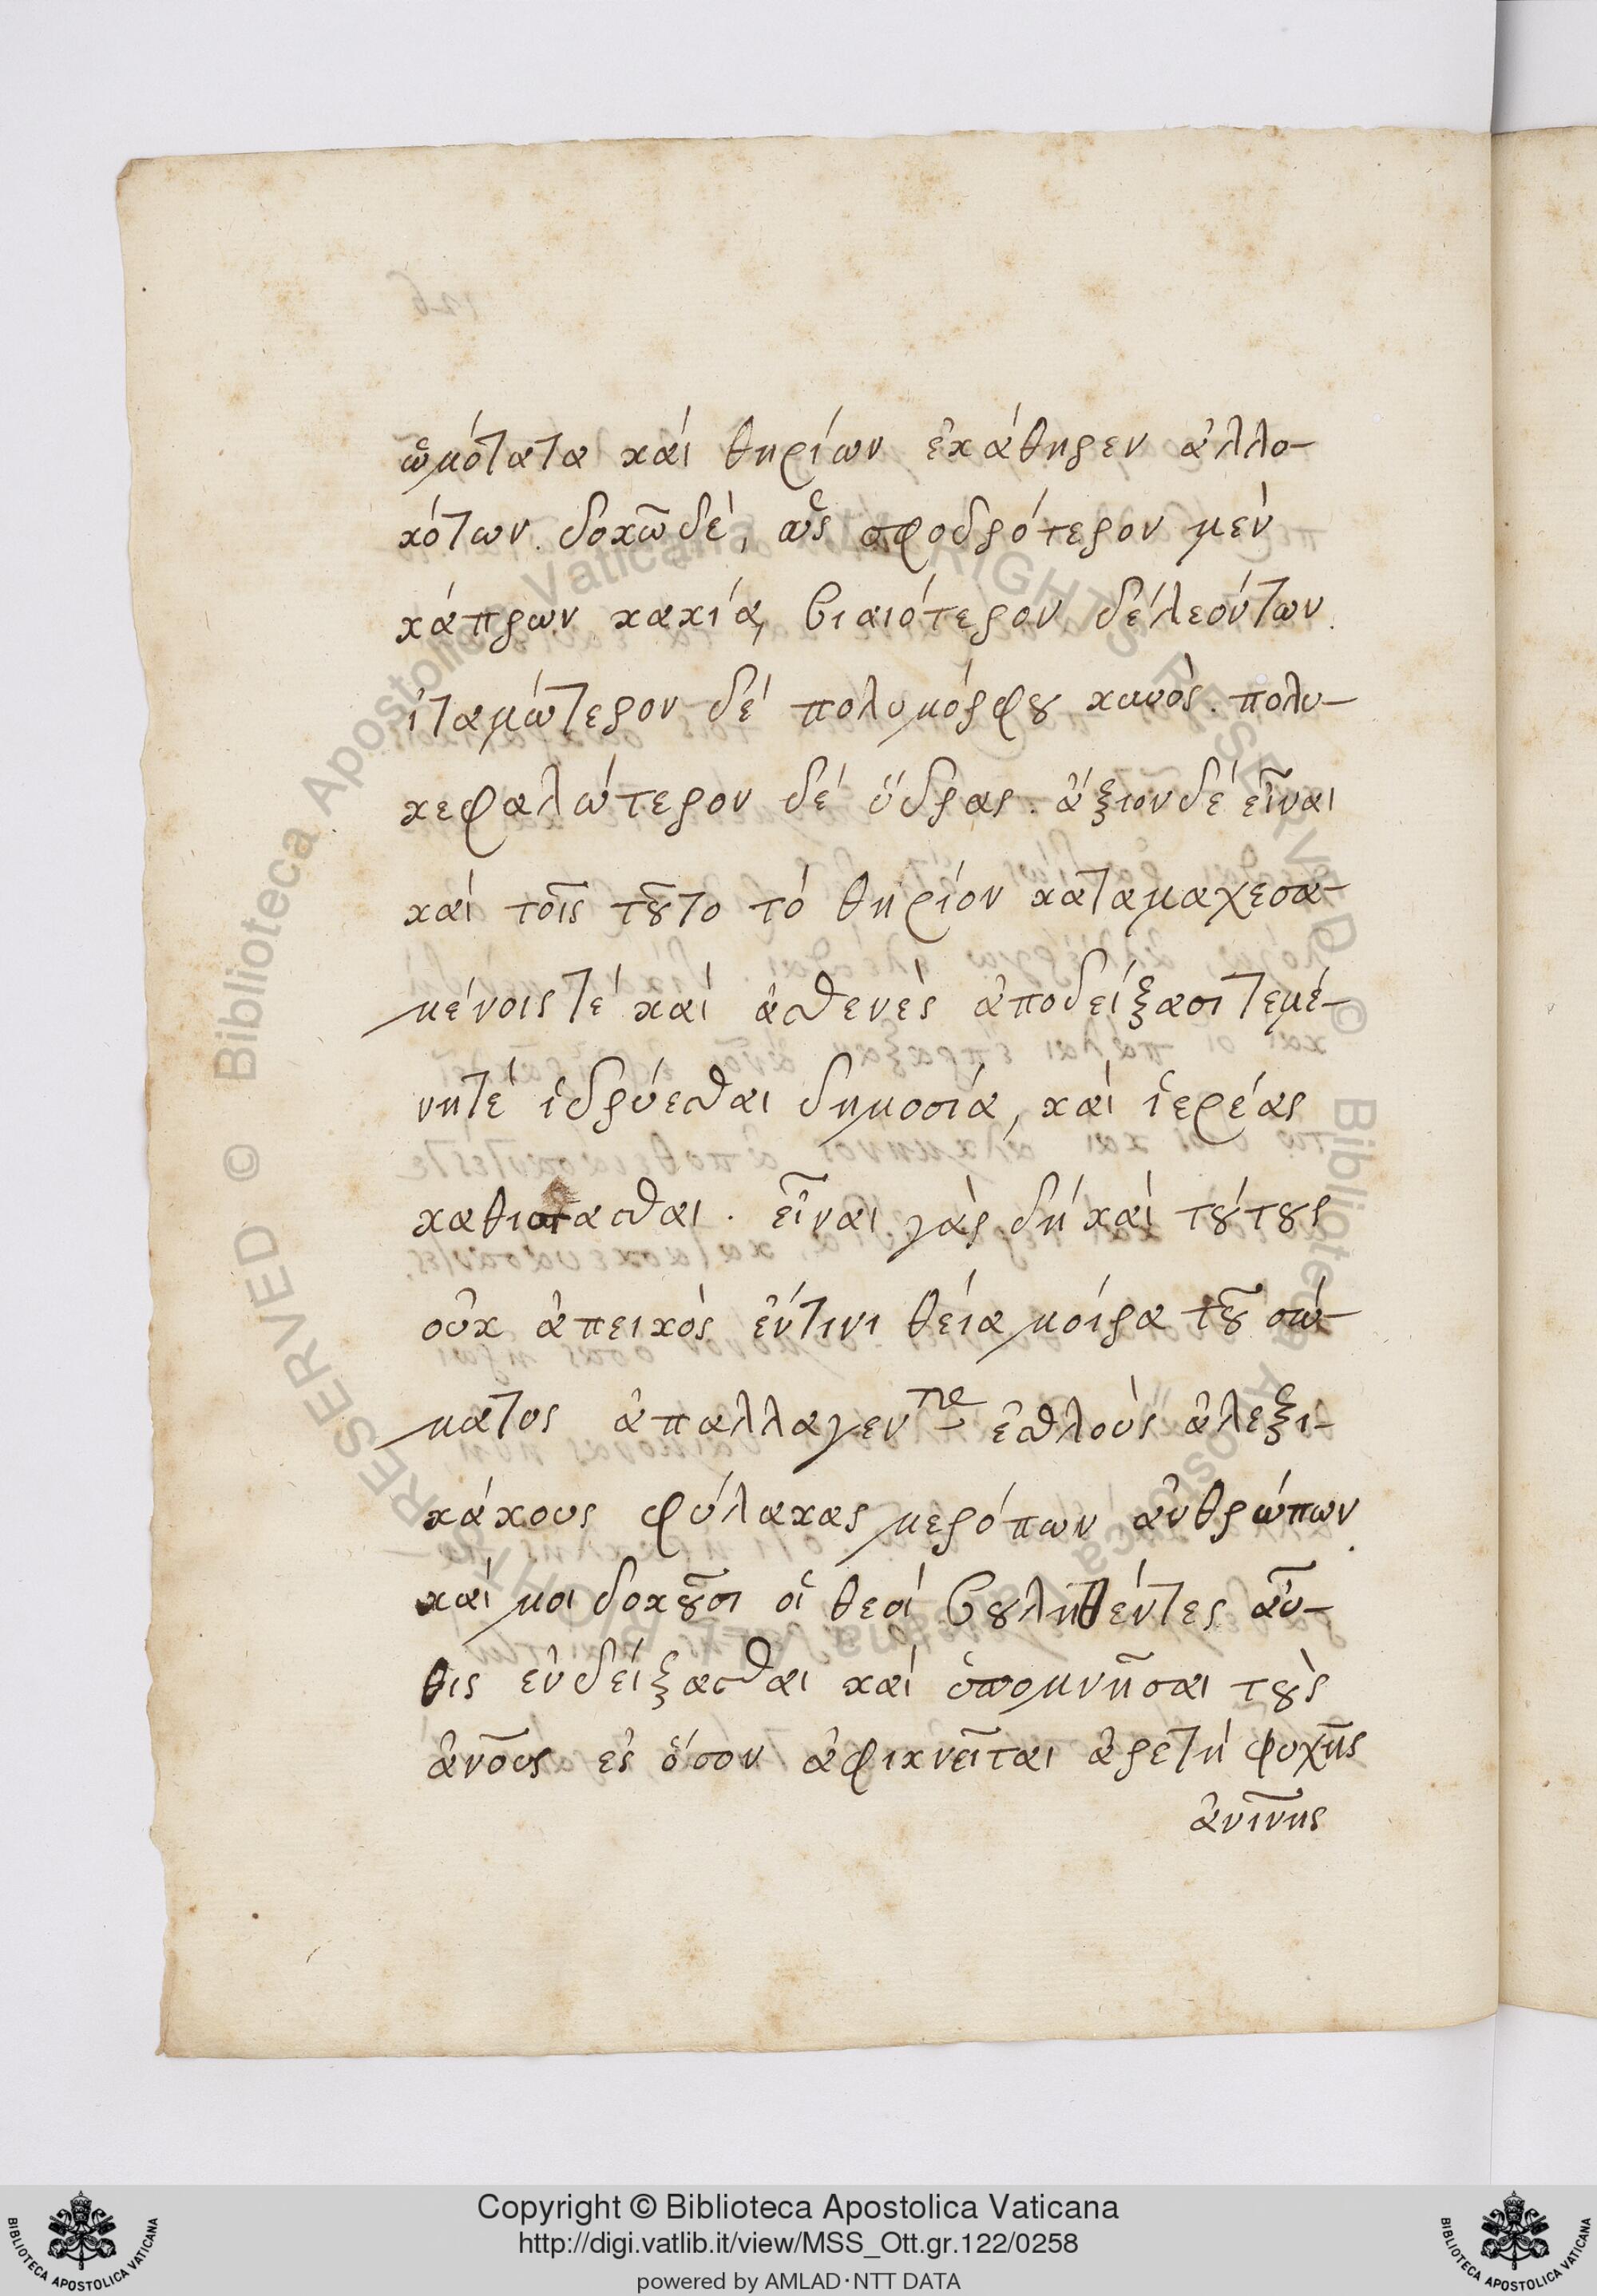 ὠμότατα καὶ θηρίων ἐκάθηρεν ἀλλο-
κότων. δοκῶ δέ, ὡς σφοδρότερον μὲν
κάπρων κακία, βιαιότερον δέ λεόντων.
ἰταμώτερον δέ πολυμόρφου κυνὸς. πολυ-
κεφαλώτερον δέ ὕδρας. ἄξιον δέ εἶναι
καὶ τοῖς τοῦτο τό θηρίον καταμαχεσα-
μένοις τέ καὶ ἀσθενὲς ἀποδείξασι τεμέ-
νη τέ ἱδρύεσθαι δημοσία, καὶ ἱερέας
καθίστασθαι. εἶναι γὰρ δή καὶ τούτους
οὐκ ἀπεικὸς ἔν τινι θεία μοίρα τοῦ σώ-
ματος ἀπαλλαγεντας ἐσθλοὺς ἀλεξι-
κάκους φύλακας μερόπων ἀνθρώπων.
καί μοι δοκοῦσι οἱ θεοί βουληθέντες αὖ-
θις ἐνδείξασθαι καὶ ὑπομνῆσαι τοὺς
ἀνους ἐς ὅσον ἀφικνεῖται ἀρετή ψυχῆς
ἀνίνης
Copyright © Biblioteca Apostolica Vaticana
http://digi.vatlib.it/view/MSS_Ott.gr.122/0258
powered by AMLAD·NTT DATA
BIBLIOTECA APOSTOLICA VATICANA
BIBLIOTECA APOSTOLICA VATICANA